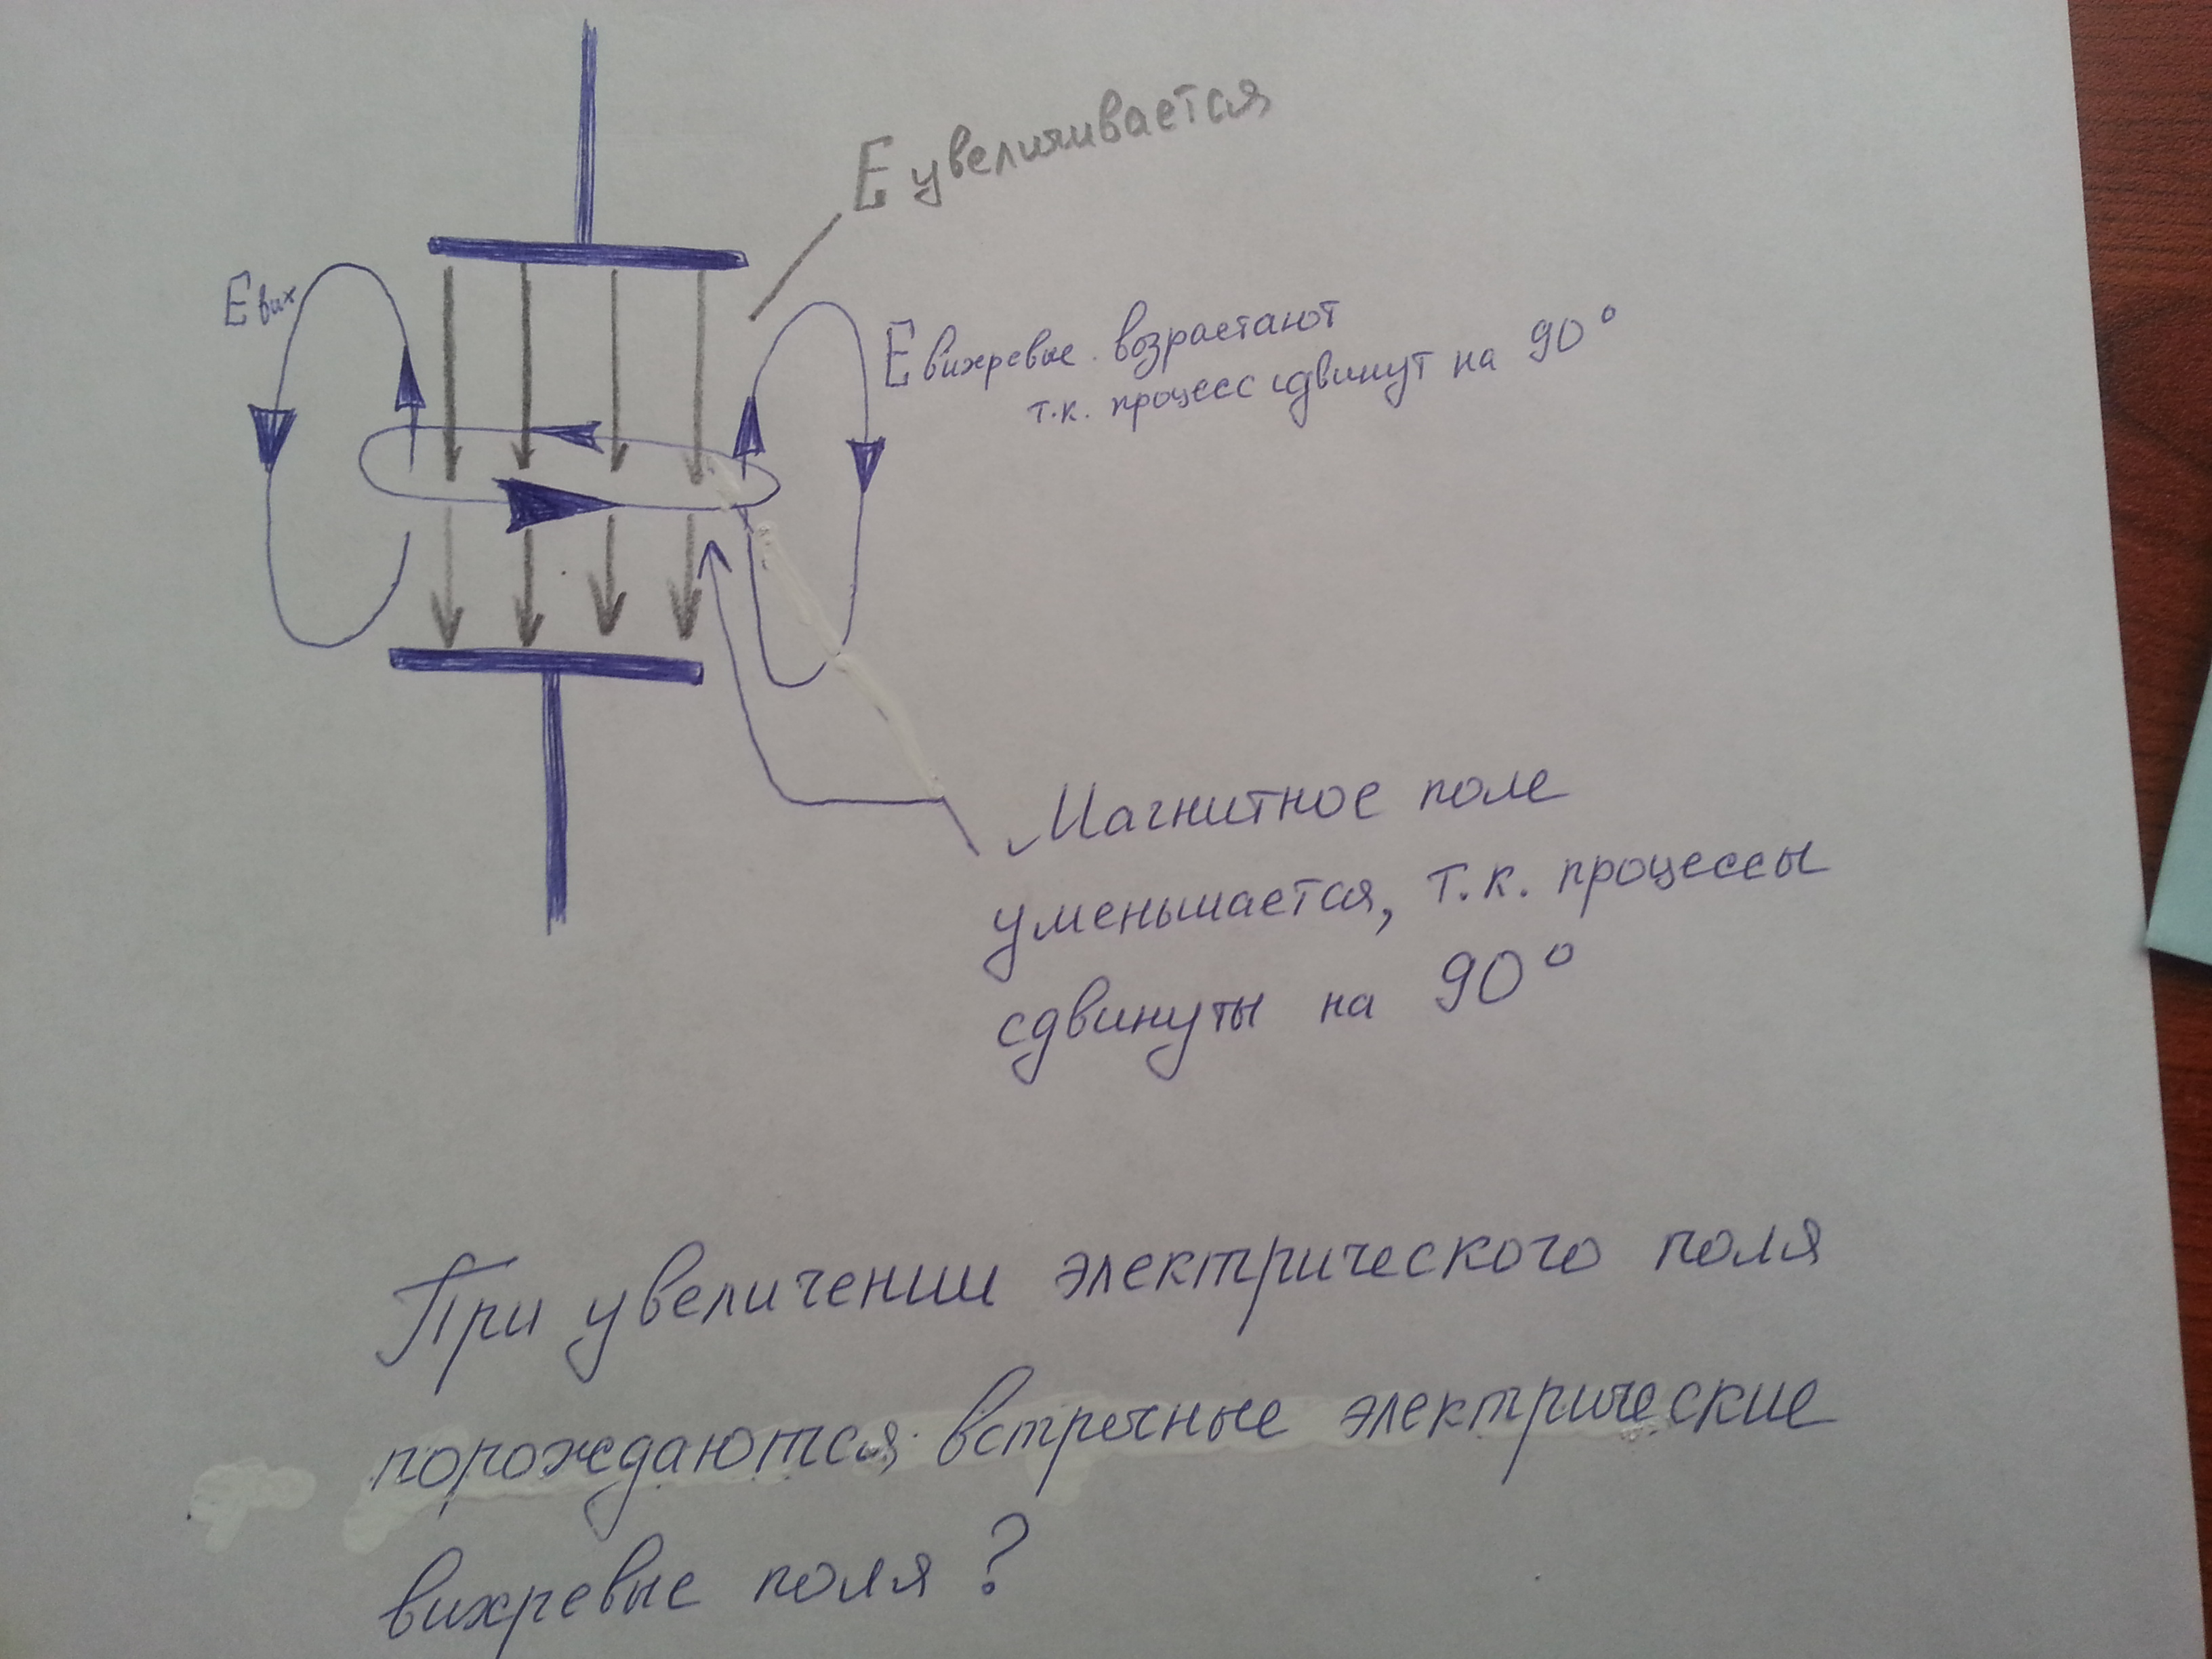 E увеличивается
E вих
E вихревые возрастают
т.к. процесс сдвинут на 90°
Магнитное поле
уменьшается, т.к. процессы
сдвинуты на 90°
При увеличении электрического поля
порождаются встречные электрические
вихревые поля?